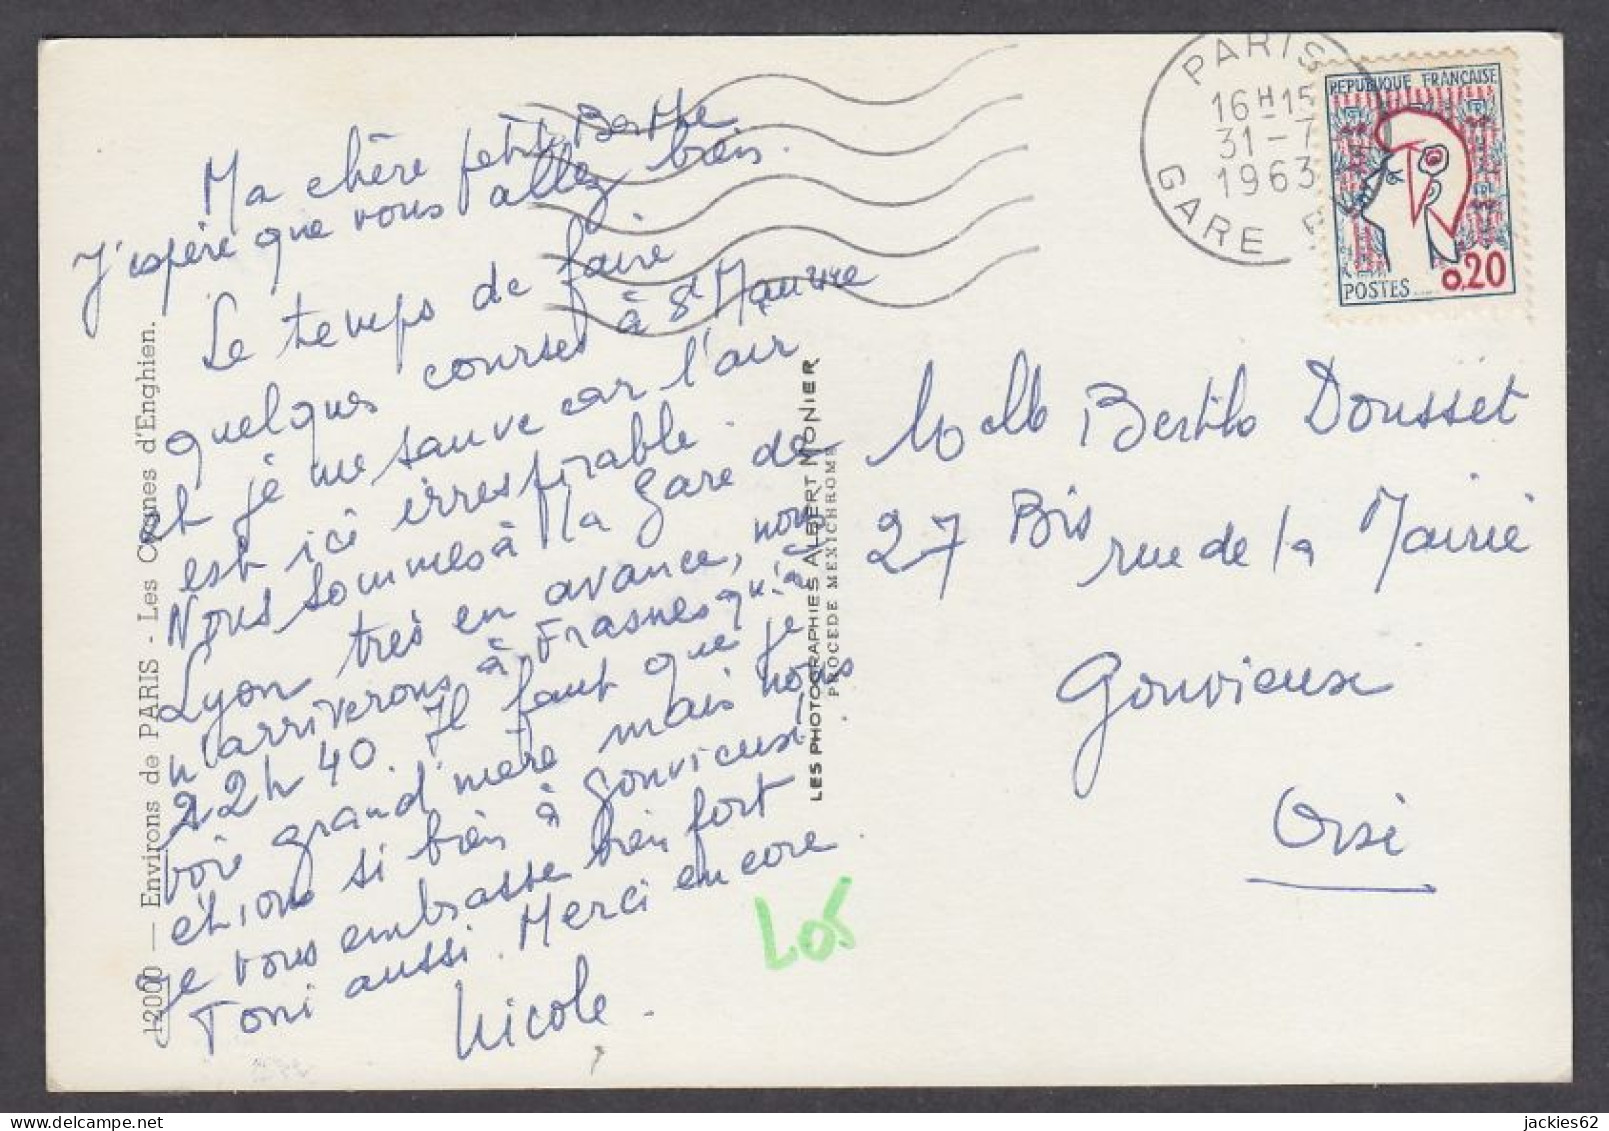 Ma chère petite Berthe
J'espère que vous allez bien.
Le temps de faire
quelques courses à St Maurice
et je me sauve car l'air
est ici irrespirable.
Nous sommes à la Gare de
Lyon très en avance, nous
n'arriverons à Frasnes qu'à
22h40. Il faut que je
voie grand'mère mais nous
étions si bien à Gouvieux
je vous embrasse bien fort
Toni aussi. Merci encore.
Nicole.
12000 — Environs de PARIS - Les Cygnes d'Enghien.
LES PHOTOGRAPHIES ALBERT MONIER
PROCEDE MEXICHROME
PARIS
16H15
31-7
1963
GARE
REPUBLIQUE FRANÇAISE
POSTES
0,20
Melle Berthe Dousset
27 Bis rue de la Mairie
Gouvieux
Oise
jackies62